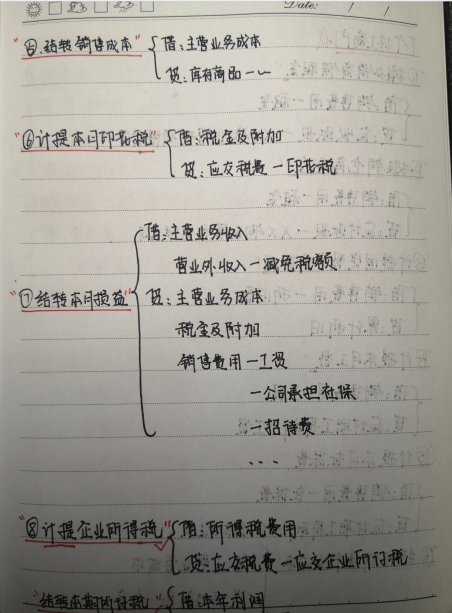 Date: / /
"⑤结转销售成本" { 借:主营业务成本
贷:库存商品一~
"⑥计提本月印花税" { 借:税金及附加
贷:应交税费一印花税
借:主营业务收入
营业外收入一减免税额
"⑦结转本月损益" { 贷:主营业务成本
税金及附加
销售费用一工资
一公司承担社保
一招待费
...
"⑧计提企业所得税" { 借:所得税费用
贷:应交税费一应交企业所讨税
"结转本期所讨税" { 借:本年利润